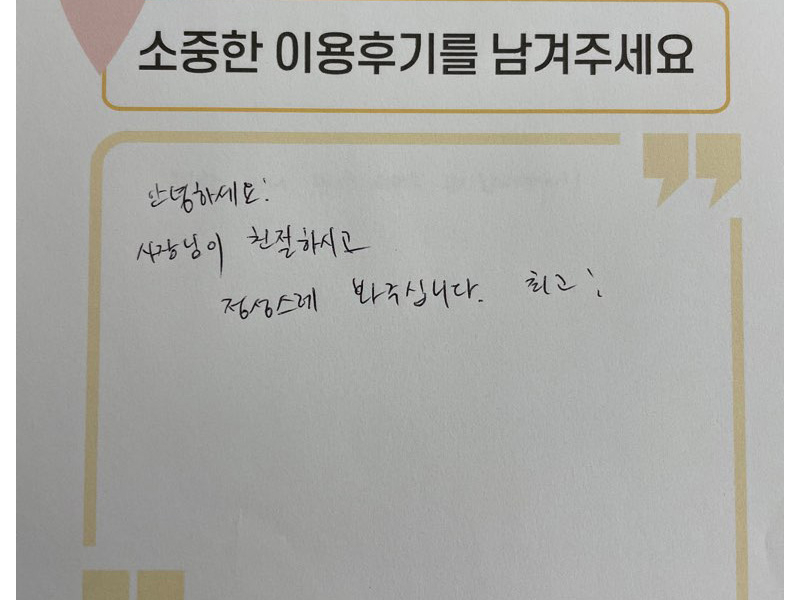 소중한 이용후기를 남겨주세요
안녕하세요!
사장님이 친절하시고
정성스레 봐주십니다. 최고!